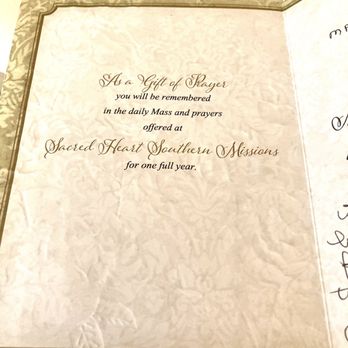 As a Gift of Prayer
you will be remembered
in the daily Mass and prayers
offered at
Sacred Heart Southern Missions
for one full year.